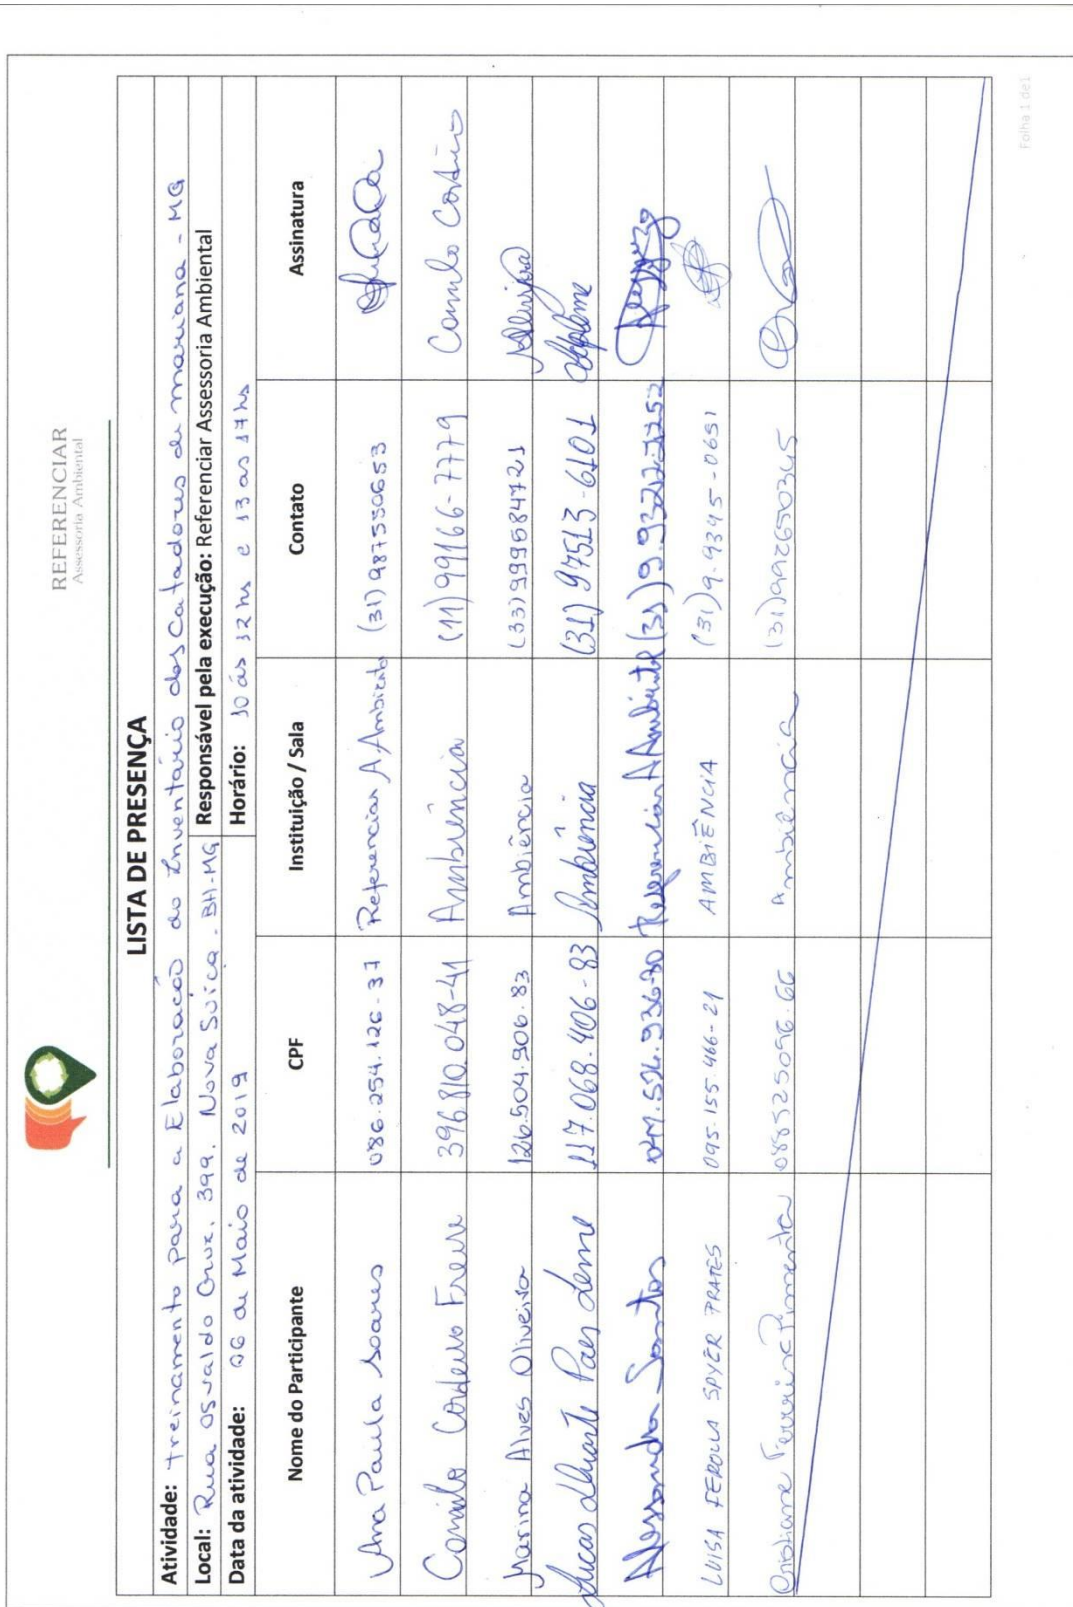 REFERENCIAR
Assessoria Ambiental
LISTA DE PRESENÇA
Atividade: treinamento para a Elaboração do Inventário dos Catadores de mariana - MG
Local: Rua Osvaldo Cruz, 399. Nova Suíça - BH-MG Responsável pela execução: Referenciar Assessoria Ambiental
Data da atividade: 06 de Maio de 2019 Horário: 10 ás 12 hs e 13 as 17 hs
Nome do Participante CPF Instituição / Sala Contato Assinatura
Ana Paula Soares 086.254.126-37 Referenciar A. Ambiental (31) 987550653
Camilo Cordeiro Freire 396.810.048-41 Ambiência (11) 99166-7779 Camilo
Marina Alves Oliveira 126.504.906.83 Ambiência (33) 999584721
Lucas Duarte Paes Leme 117.068.406-83 Ambiência (31) 97513-6101
Alessandra Santos Referenciar A Ambiental (31)
LUISA FEROLLA SPYER PRATES 095.155.466-21 AMBIÊNCIA (31) 9.9345-0651
Cristiane Ferreira Pimenta 088525096.66 Ambiência (31) 992650345
Folha 1 de1